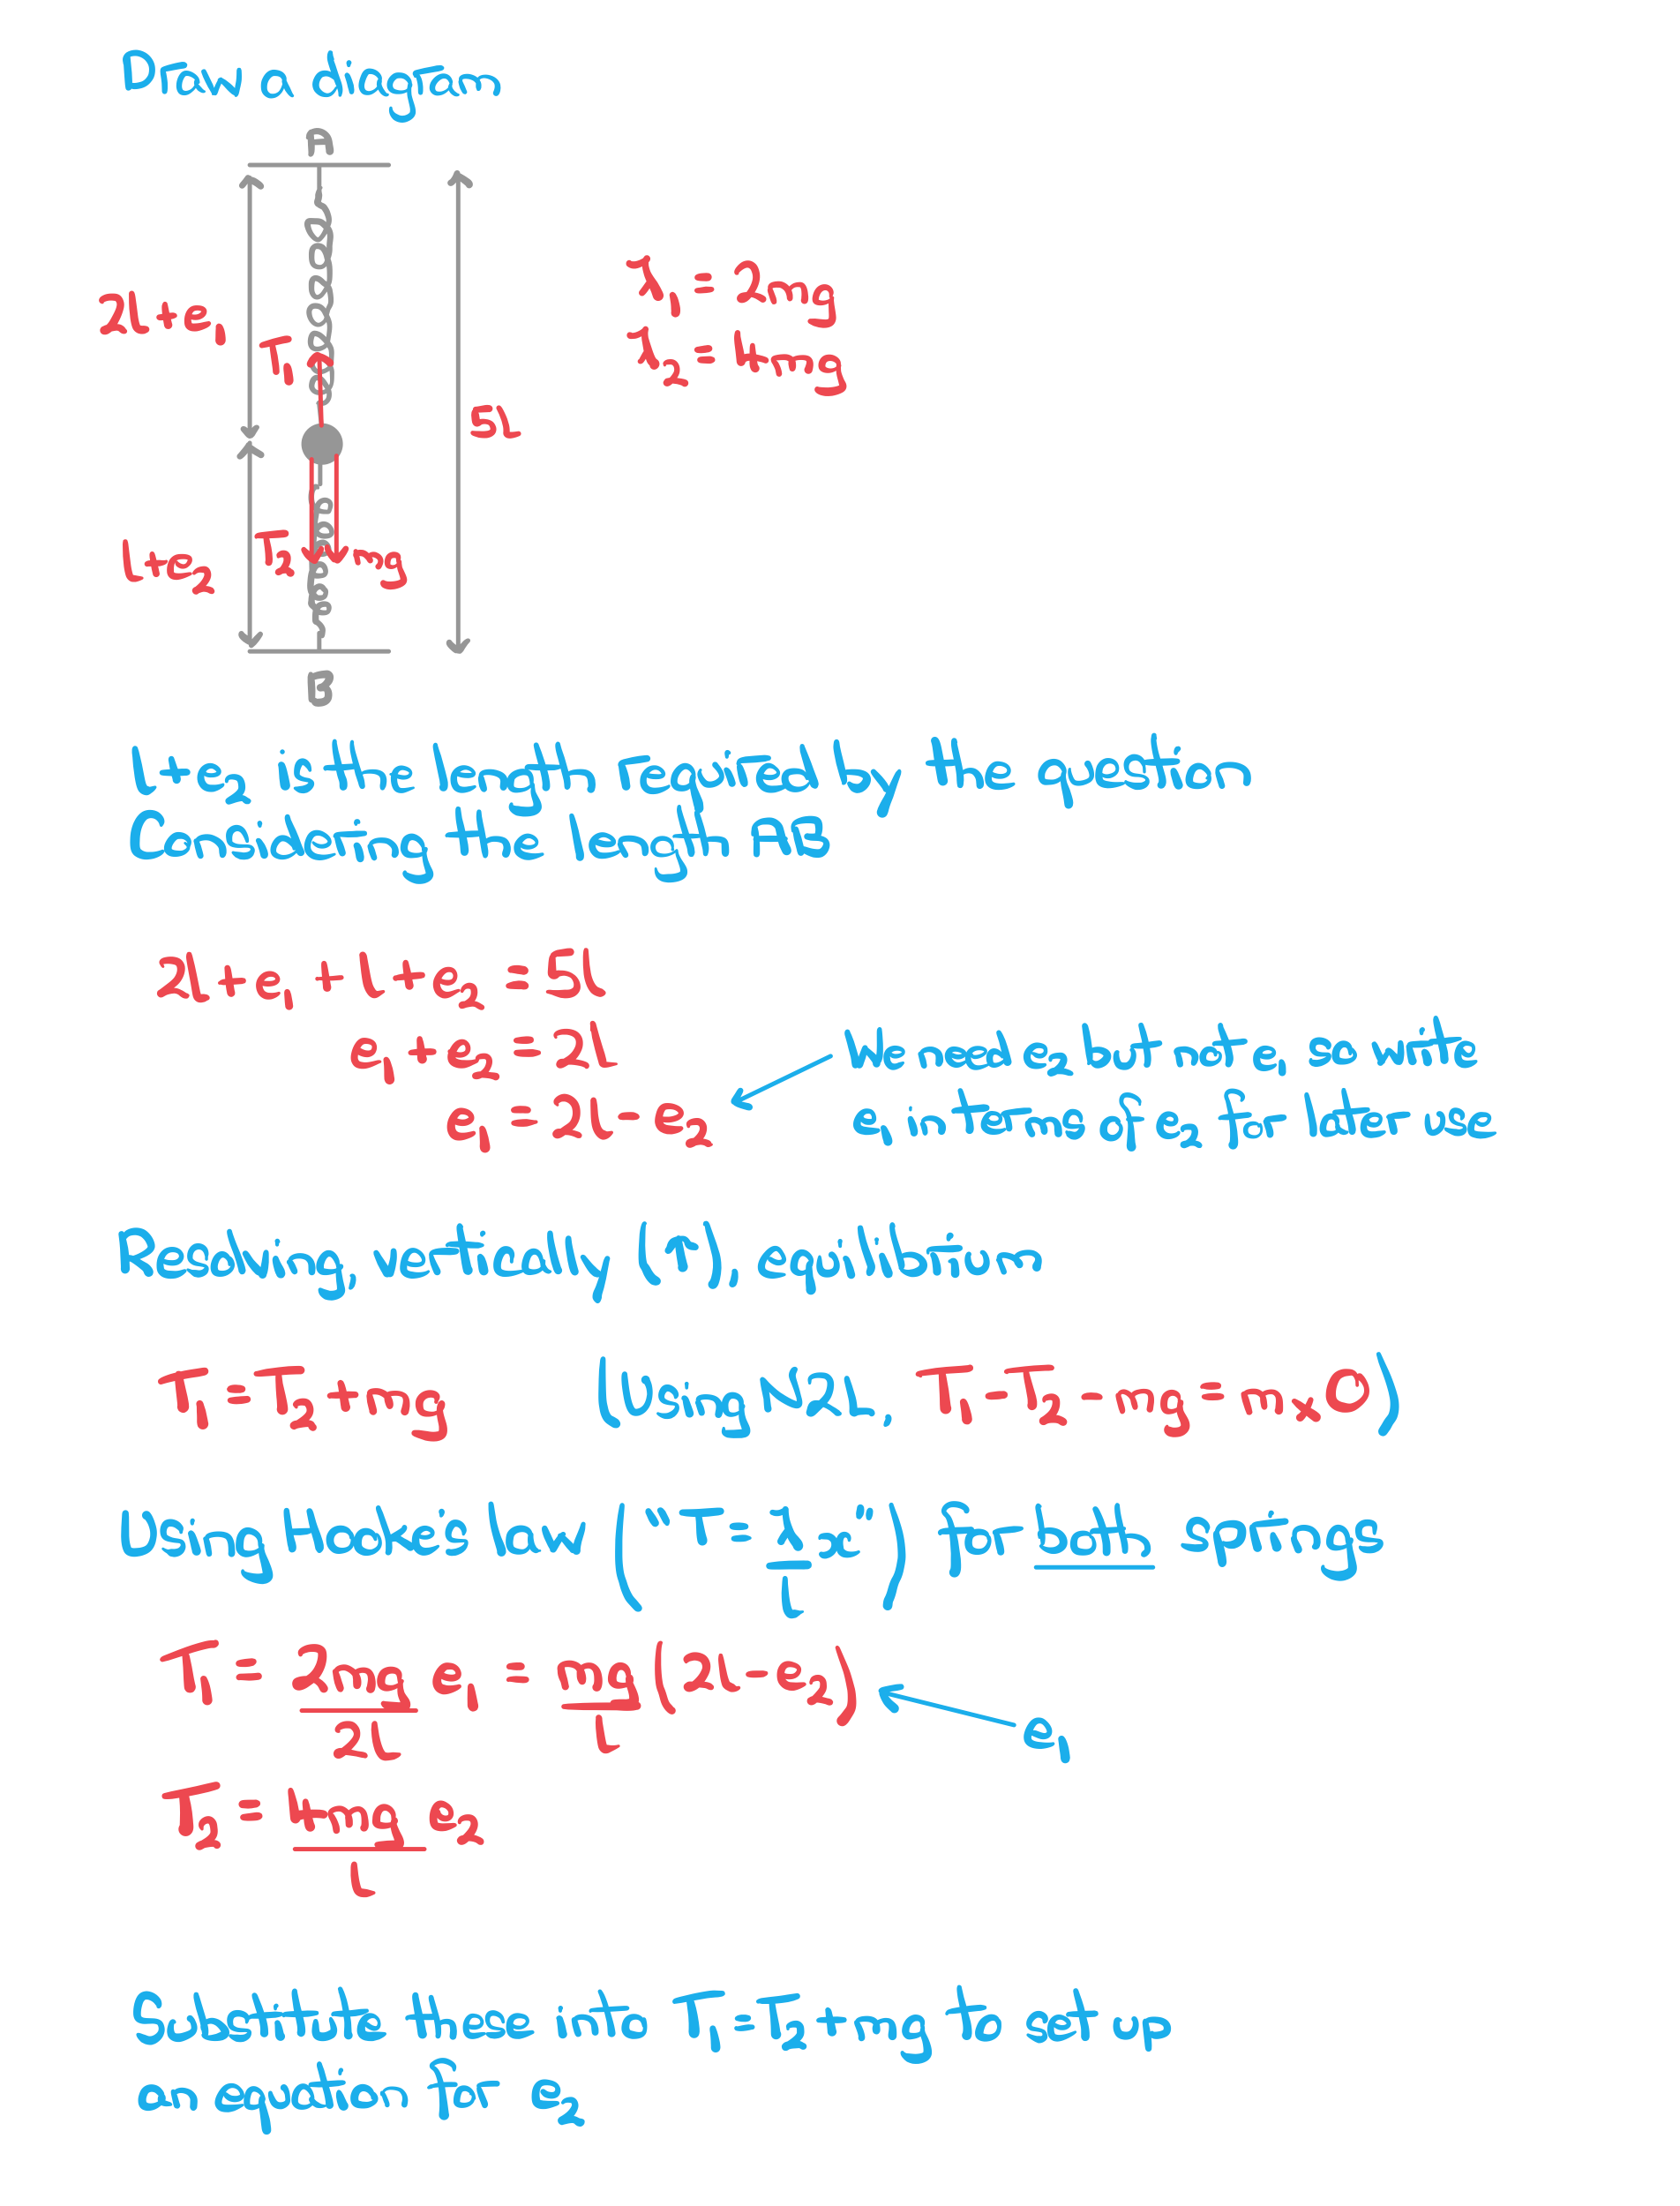 Draw a diagram
A
2l+e₁
T₁
λ₁ = 2mg
λ₂ = 4mg
5l
l+e₂
T₂
mg
B
l+e₂ is the length required by the question
Considering the length AB
2l+e₁ + l+e₂ = 5l
e₁+e₂ = 2l
e₁ = 2l - e₂
We need e₂ but not e₁ so write
e₁ in terms of e₂ for later use
Resolving, vertically (↑), equilibrium
T₁ = T₂ + mg (Using N2L, T₁-T₂-mg = m×0)
Using Hooke's law ("T = λ/l x") for both springs
T₁ = 2mg/2l e₁ = mg/l (2l-e₂)
e₁
T₂ = 4mg/l e₂
Substitute these into T₁=T₂+mg to set up
an equation for e₂